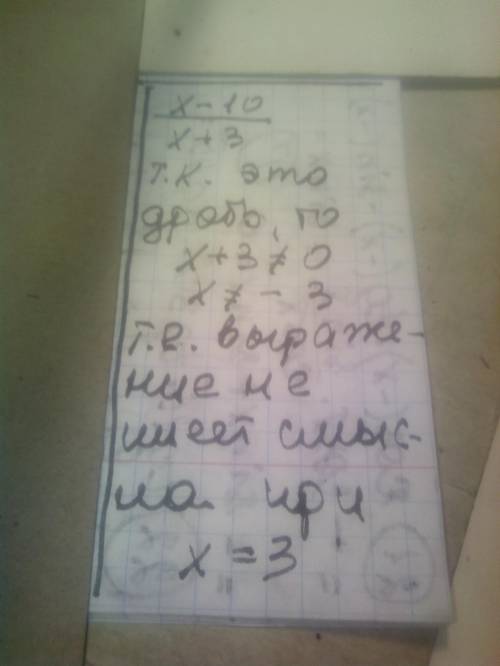 x-10
x+3
т.к. это
дробь, то
x+3≠0
x≠-3
т.е. выраже-
ние не
имеет смыс-
ла при
x=3